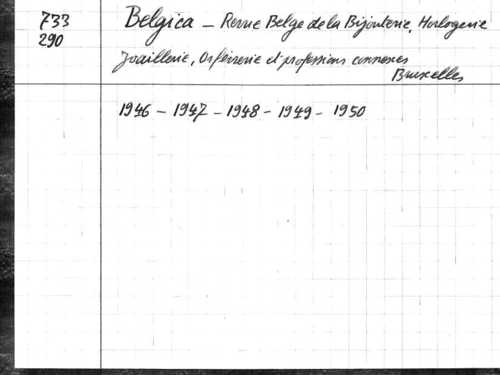 733
290
Belgica - Revue Belge de la Bijouterie, Horlogerie
Joaillerie, Orfèvrerie et professions connexes
Bruxelles
1946 - 1947 - 1948 - 1949 - 1950